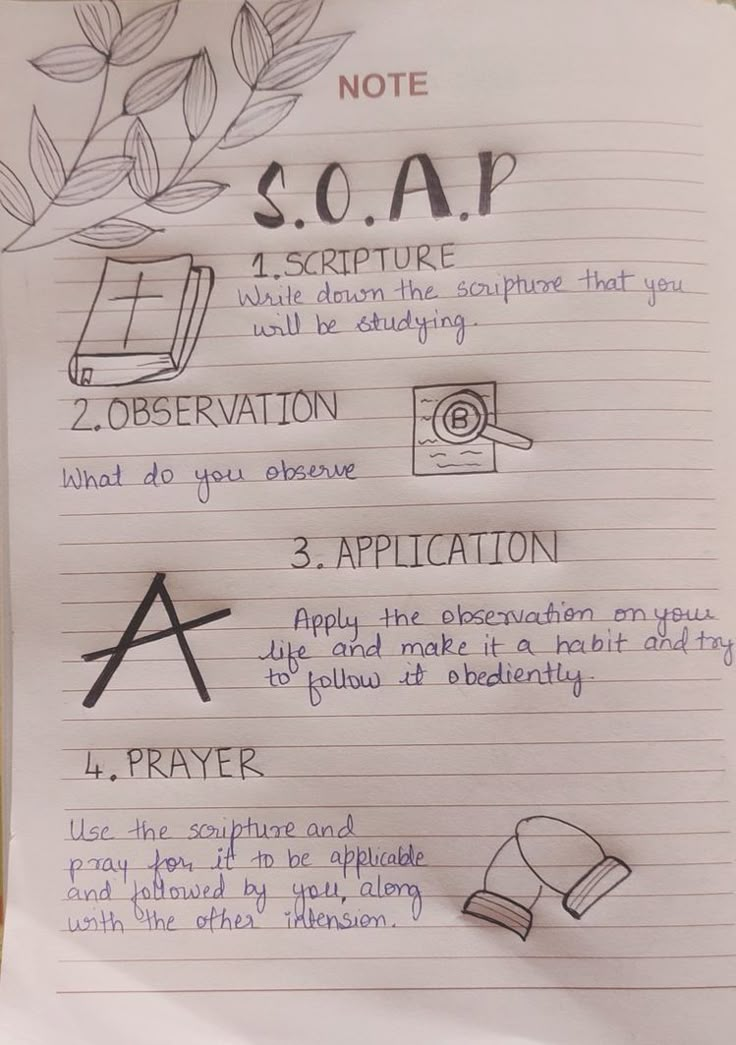 NOTE
S.O.A.P
1.SCRIPTURE
Write down the scripture that you
will be studying.
2.OBSERVATION
B
What do you observe
3. APPLICATION
A
Apply the observation on your
life and make it a habit and try
to follow it obediently.
4. PRAYER
Use the scripture and
pray for it to be applicable
and followed by you, along
with the other intension.